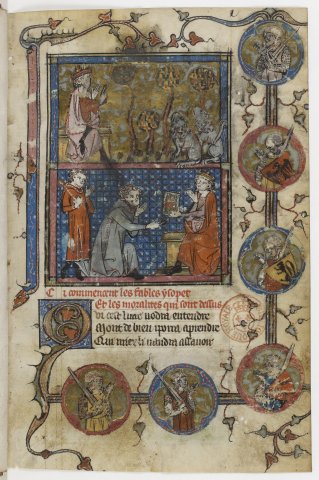 Ci commencent les fables ysopet
Et les moralites qui sont dessus
ui cest liure vodra entendre
Mont de bien i porra aprendre
Qui miex li vaudra